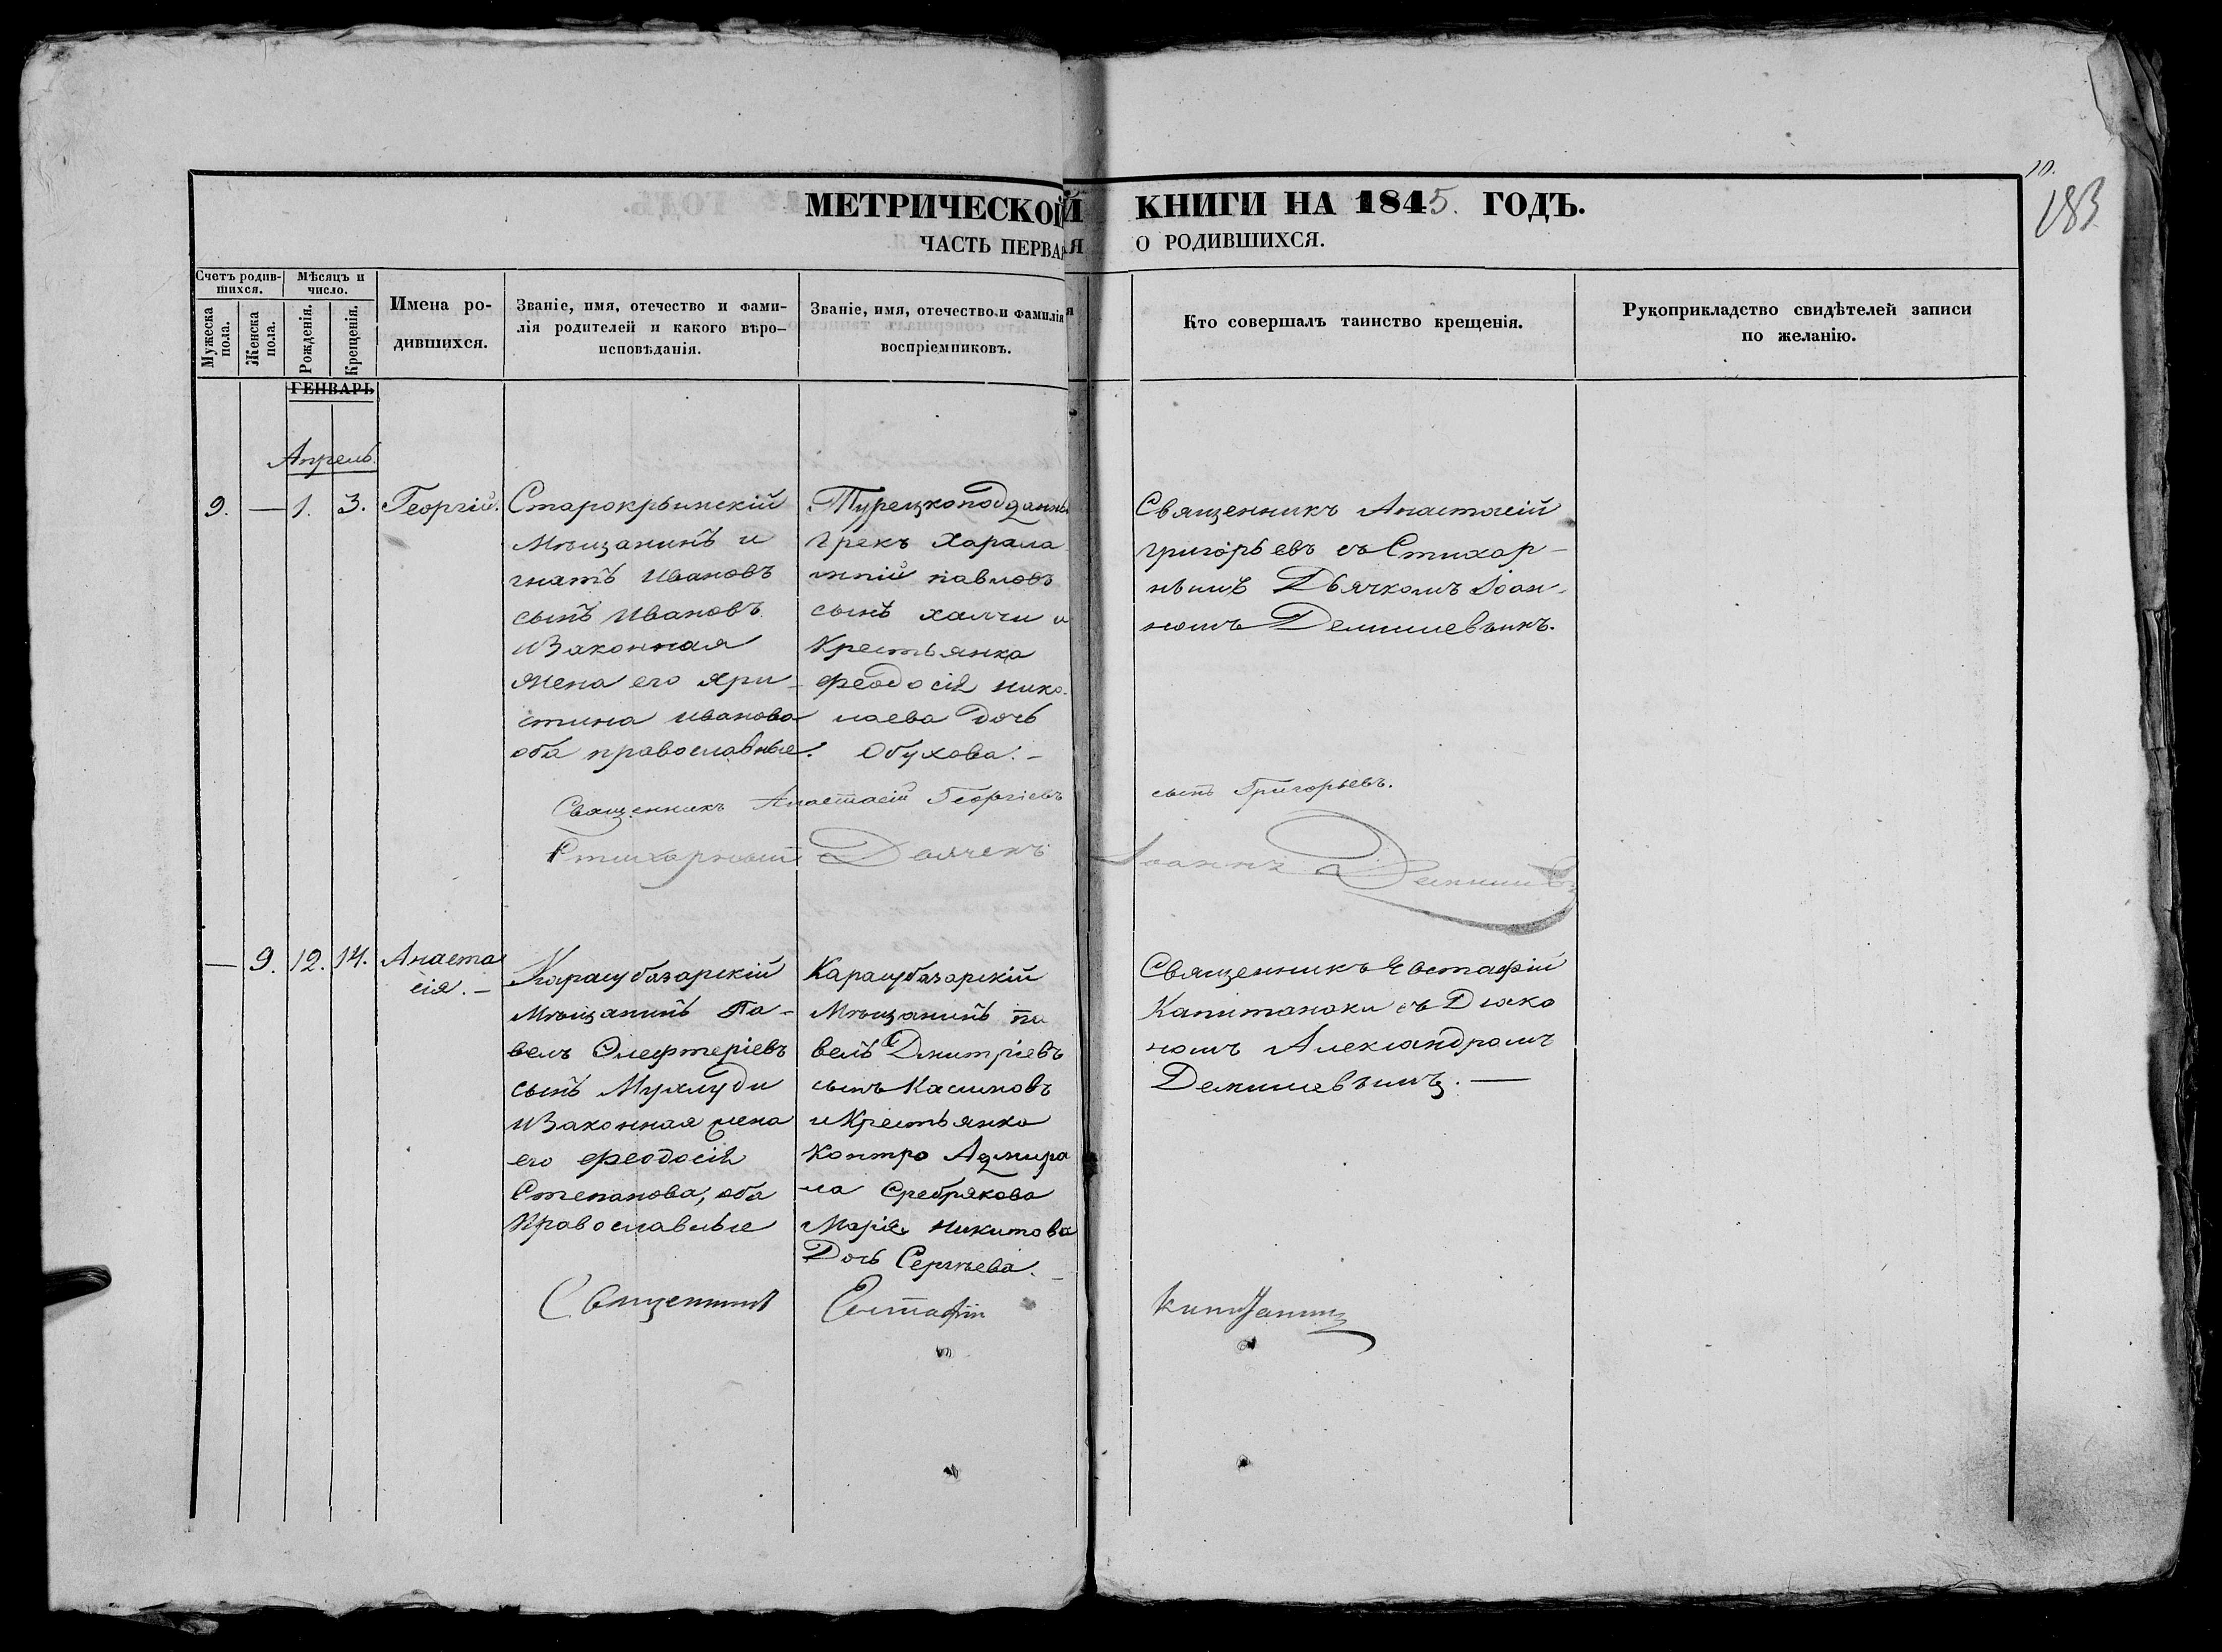 10.
183
МЕТРИЧЕСКОЙ КНИГИ НА 1845. ГОДЪ.
ЧАСТЬ ПЕРВАЯ О РОДИВШИХСЯ.
Счетъ родив-
шихся.
Мужеска пола.
Женска пола.
Мѣсяцъ и
число.
Рожденія.
Крещенія.
Имена ро-
дившихся.
Званіе, имя, отечество и фами-
лія родителей и какого вѣро-
исповѣданія.
Званіе, имя, отечество и фамилія
воспріемниковъ.
Кто совершалъ таинство крещенія.
Рукоприкладство свидѣтелей записи
по желанію.
ГЕНВАРЬ
Апрель.
9. — 1. 3. Георгій.
Старокрымскій
Мѣщанинъ и
гнатъ Ивановъ
сынъ Ивановъ
и Законная
жена его хри-
стина иванова
оба православные.
Турецкоподданный
грекъ Харала
мпій павловъ
сынъ халчи и
Крестьянка
феодосія нико-
лаева дочь
Обухова. —
Священникъ Анастасій
григорьевъ съ Стихар-
нымъ Дьячкомъ Іоан-
номъ Демишевымъ.
Священникъ Анастасій Георгіевъ сынъ Григорьевъ.
Стихарный Дьячекъ Іоаннъ Демишевъ
— 9. 12. 14. Анаста
сія. —
Карасубазарскій
Мѣщанинъ Па-
велъ Элефтеріевъ
сынъ
и Законная жена
его феодосія
Степанова, оба
Православные
Карасубазарскій
Мѣщанинъ па
велъ Дмитріевъ
сынъ Касимовъ
и Крестьянка
Контро Адмира
ла Сребрякова
Марія никитова
Дочь Сергѣева. —
Священникъ Евстафій
Капитанаки съ Дьяко
номъ Александромъ
Демишевымъ. —
Священникъ Евстафій